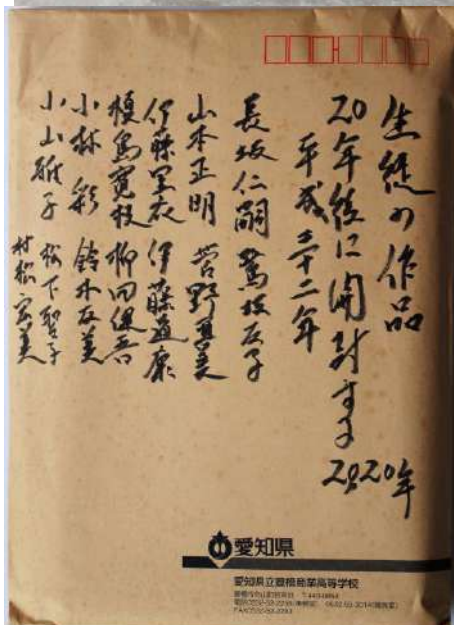 生徒の作品
20年後に開封する 2020年
平成三十二年
長坂仁嗣 鳥坂友子
山本正明 菅野真美
伊藤里衣 伊藤道康
榎島寛枝 柳田健吾
小林彩 鈴木友美
小山雅子 松下聖子
村松宏美
愛知県
愛知県立豊橋商業高等学校